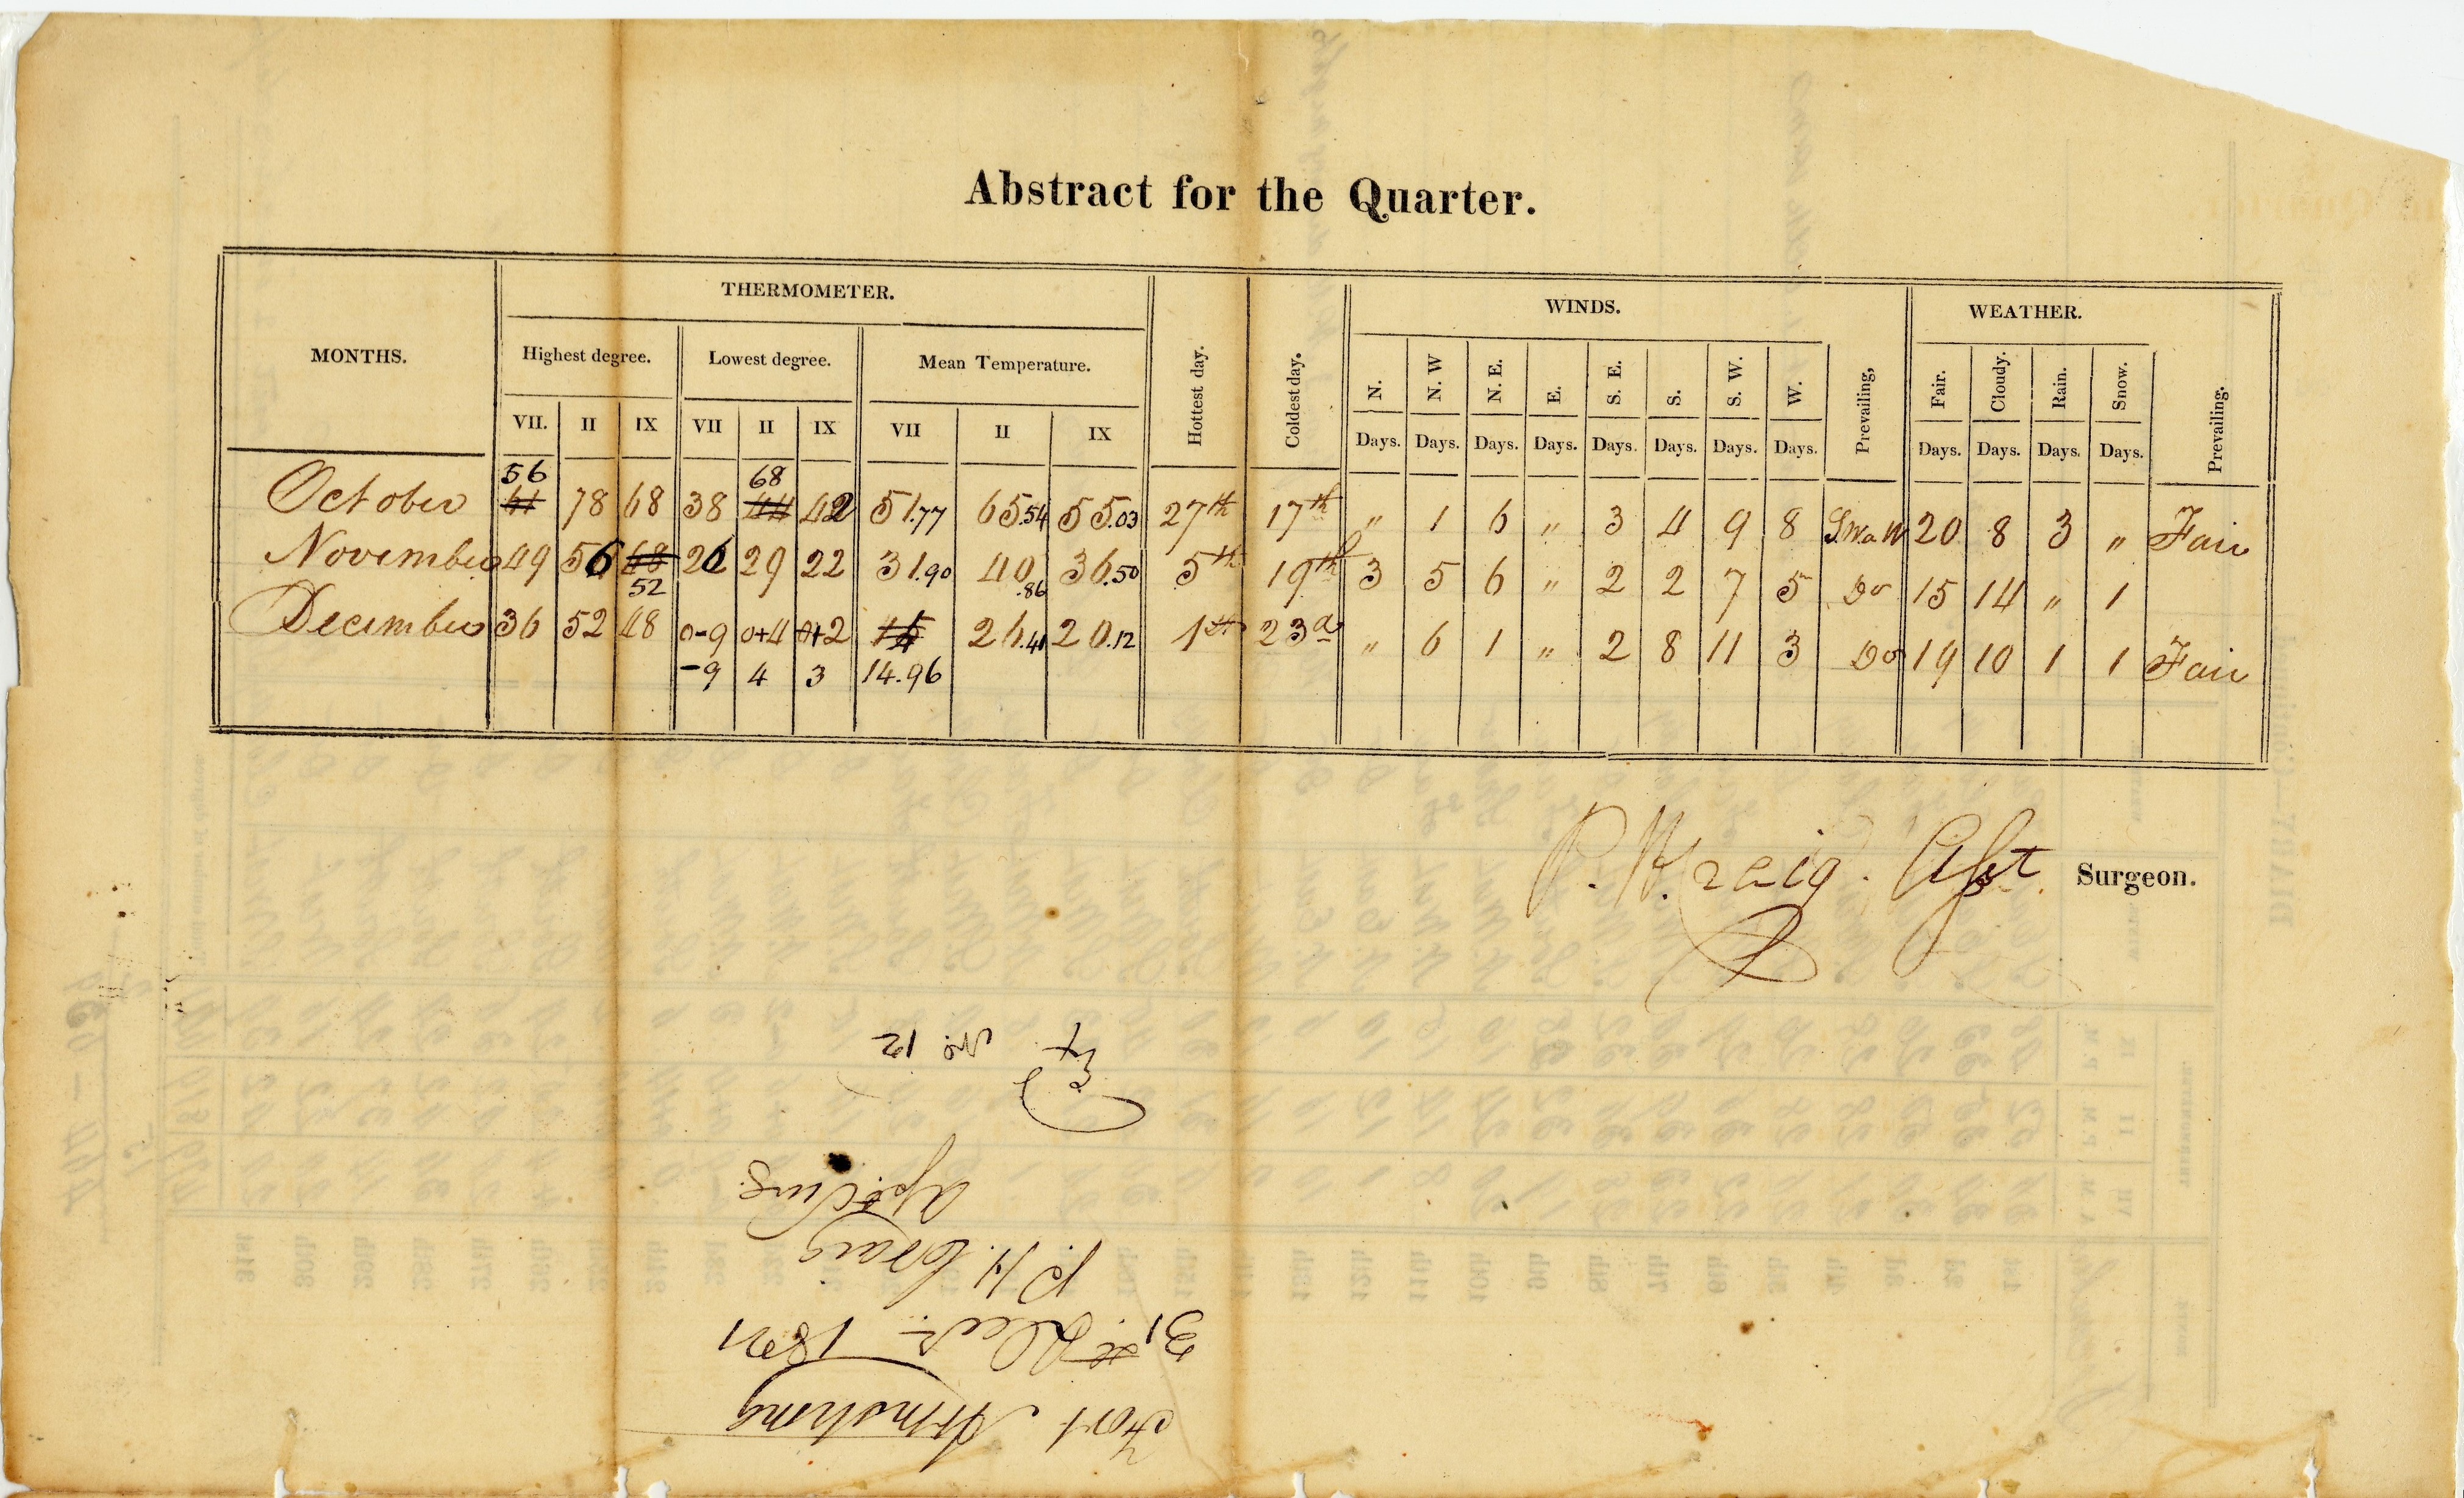 Abstract for the Quarter.
MONTHS. THERMOMETER. Hottest day. Coldest day. WINDS. WEATHER.
Highest degree. Lowest degree. Mean Temperature. N. N. W N. E. E. S. E. S. S. W. W. Prevailing, Fair. Cloudy. Rain. Snow. Prevailing.
VII. II IX VII II IX VII II IX Days. Days. Days. Days. Days. Days. Days. Days. Days. Days. Days. Days.
56 68
October 61 78 68 38 44 42 51.77 65.54 55.03 27th 17th " 1 6 " 3 4 9 8 S.W. a W 20 8 3 " Fair
November 49 56 48 26 29 22 31.90 40.86 36.50 5th 19th 3 5 6 " 2 2 7 5 Do 15 14 " 1
52
December 36 52 48 0-9 0+4 0+2 15 26.41 20.12 1st 23d " 6 1 " 2 8 11 3 Do 19 10 1 1 Fair
-9 4 3 14.96
P. H. Craig. Asst Surgeon.
Fort Armstrong
31st Decr 1821
P. H. Craig
No. 12